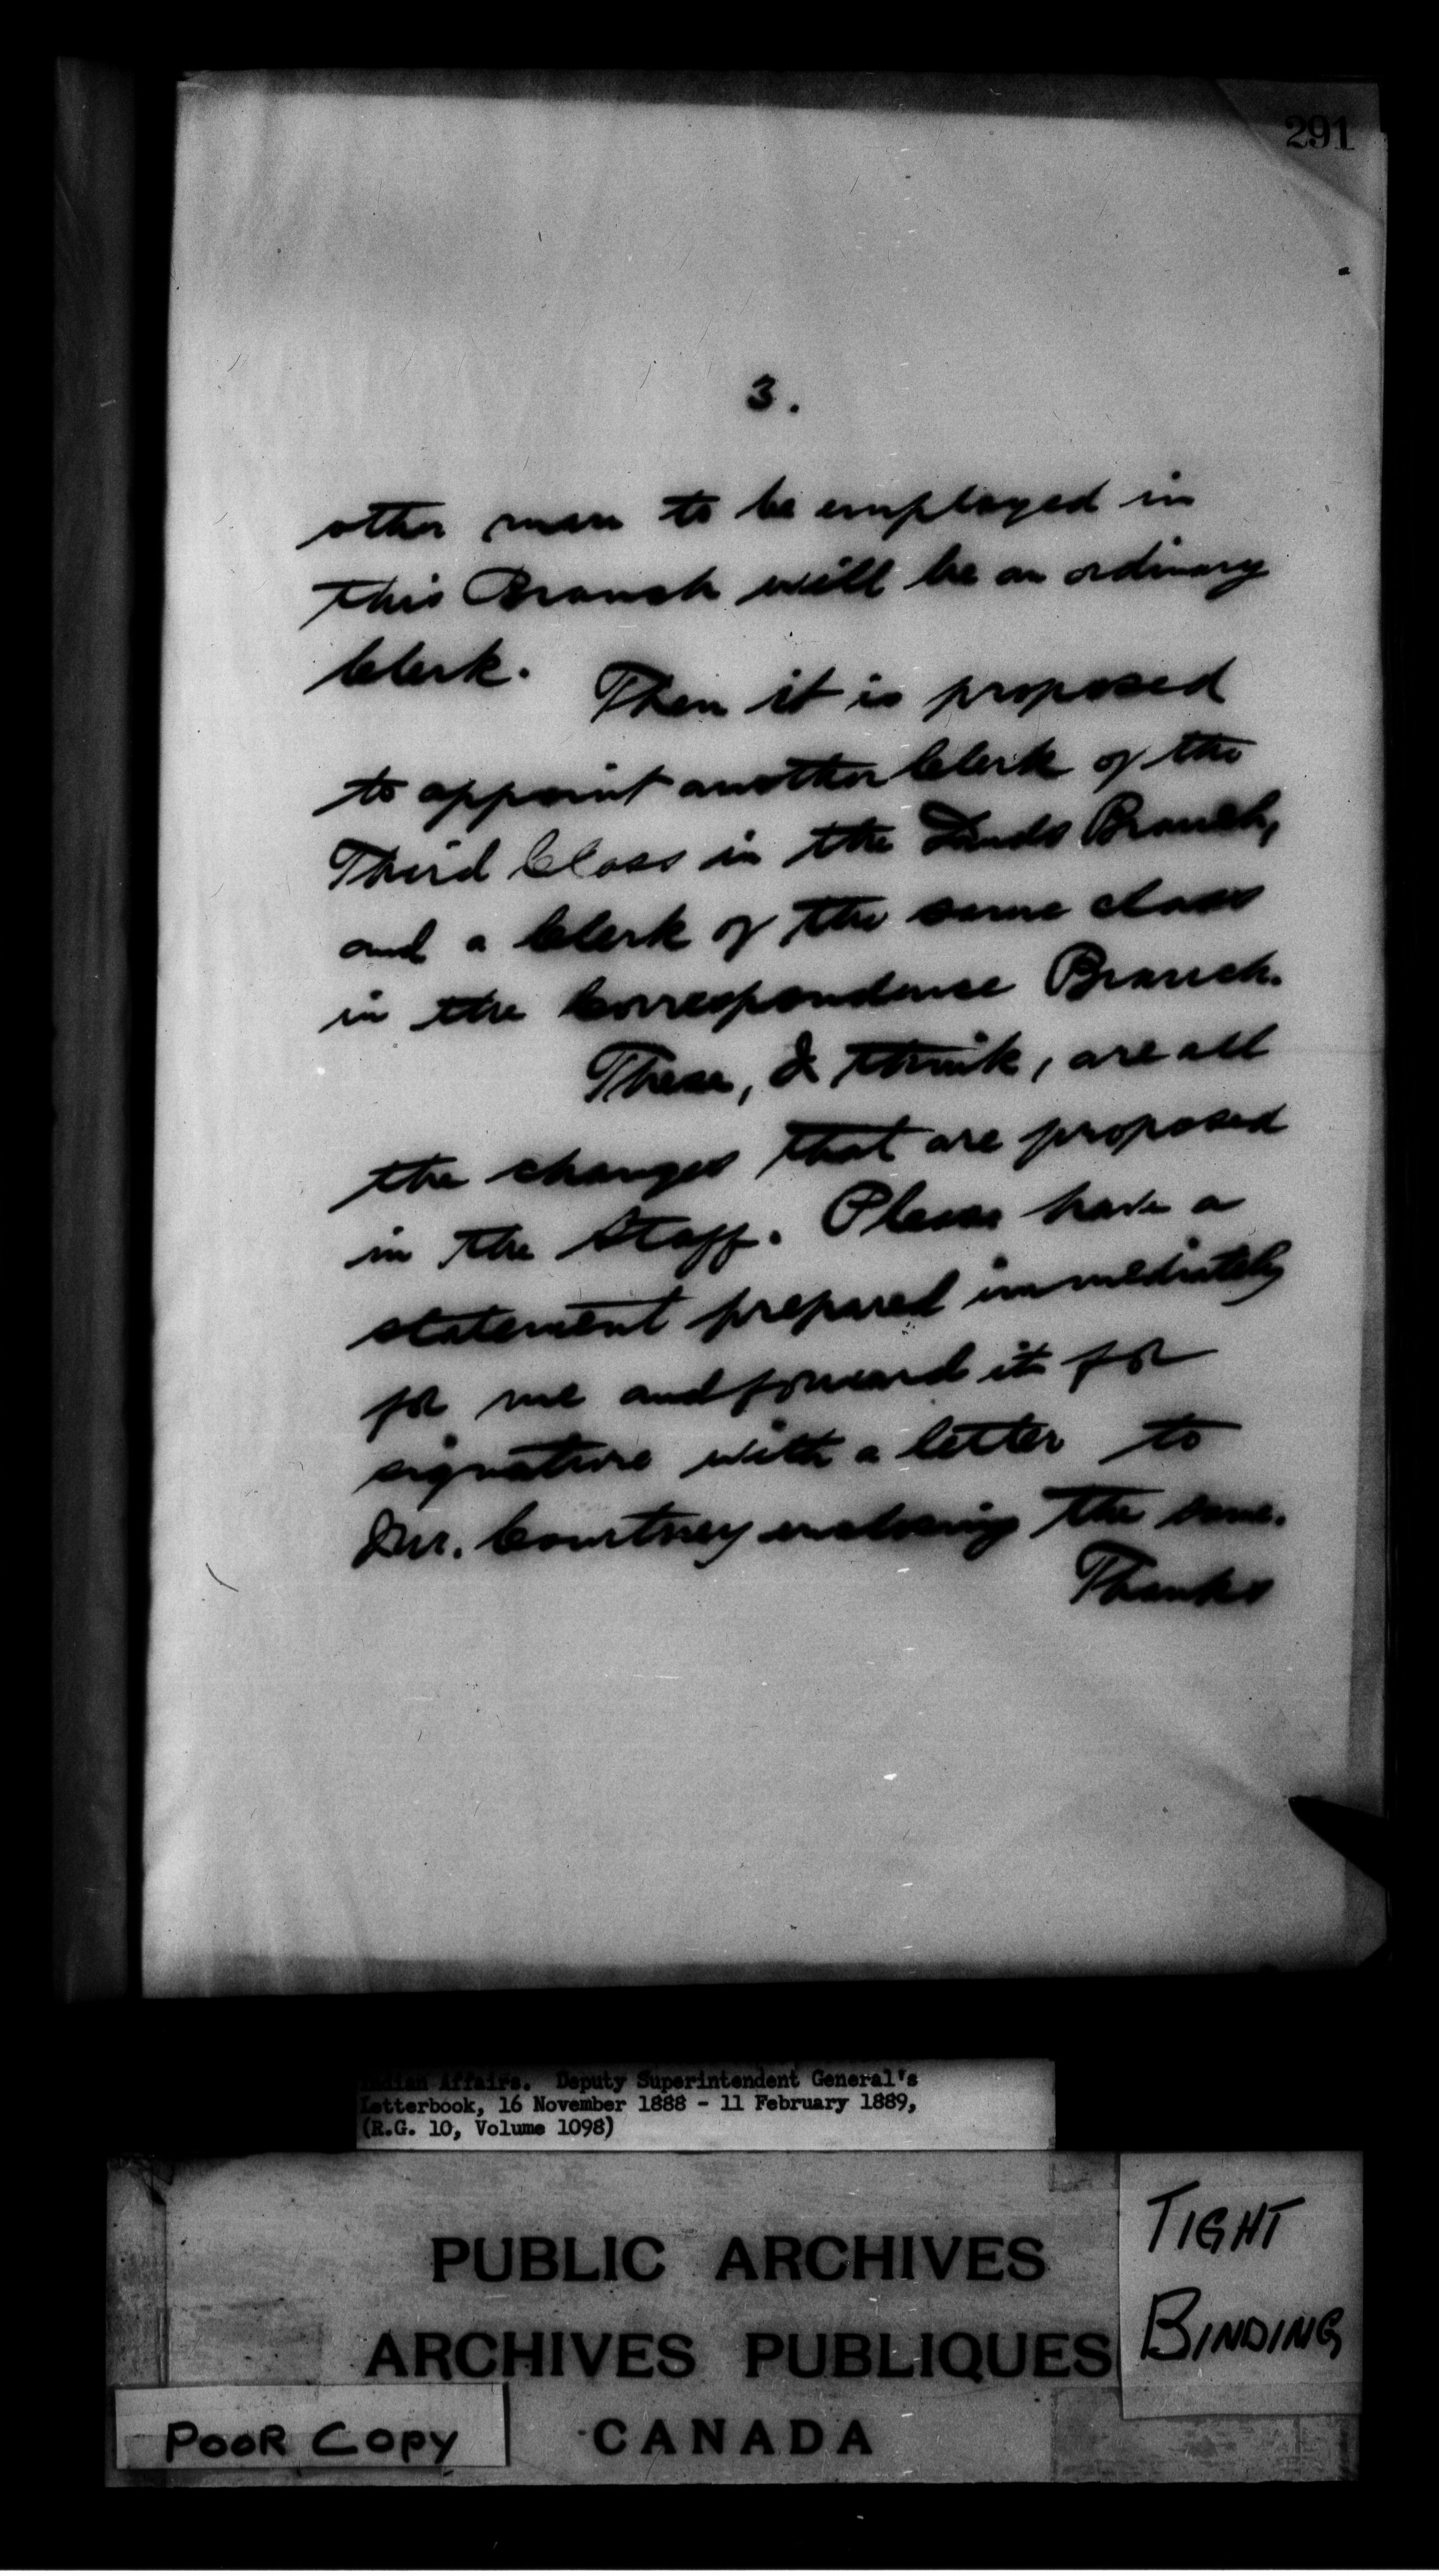 291
3.
other man to be employed in
this Branch will be an ordinary
Clerk.
Then it is proposed
to appoint another Clerk of the
Third Class in the Lands Branch,
and a Clerk of the same class
in the Correspondence Branch.
These, I think, are all
the changes that are proposed
in the Staff. Please have a
statement prepared immediately
for me and forward it for
signature with a letter to
Mr. Courtney enclosing the same.
Thanks
Indian Affairs. Deputy Superintendent General's
Letterbook, 16 November 1888 - 11 February 1889,
(R.G. 10, Volume 1098)
PUBLIC ARCHIVES
ARCHIVES PUBLIQUES
CANADA
TIGHT
BINDING
POOR COPY